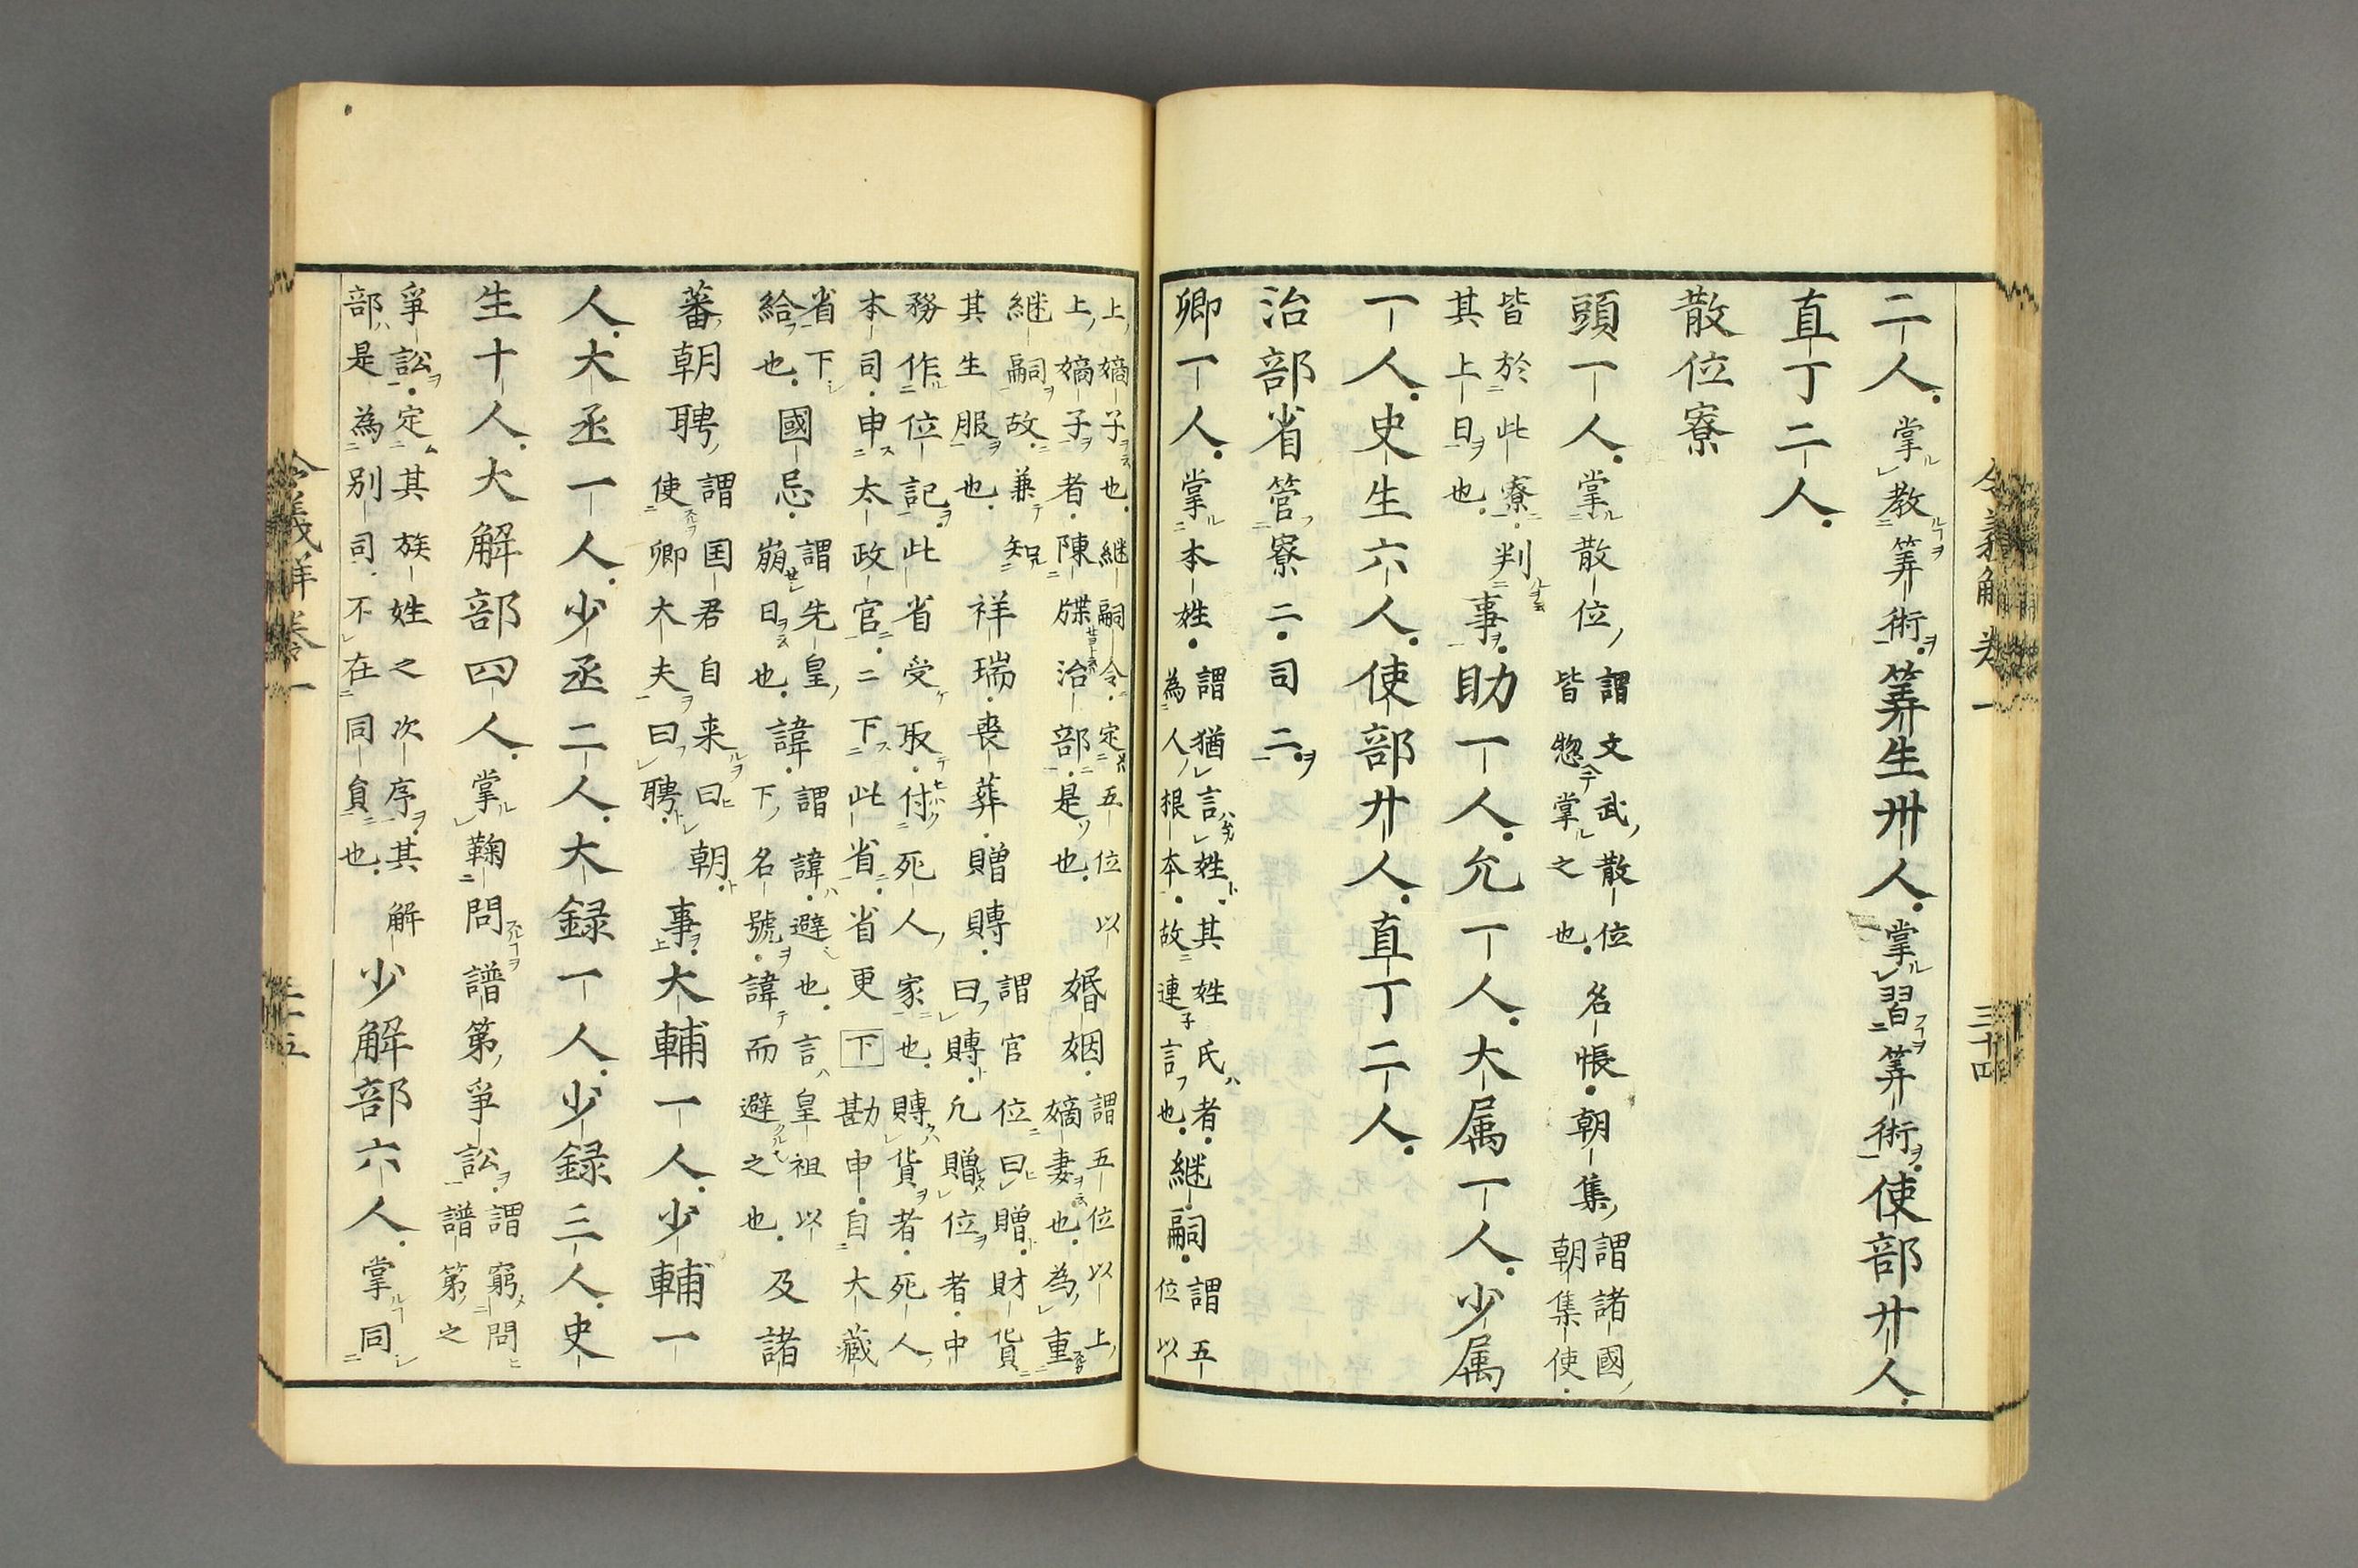 令義解卷一 三十四
二人。掌教筭術。筭生卅人。掌習筭術。使部廾人。
直丁二人。
散位寮
頭一人。掌散位、謂文武、散位皆惣掌之也。名帳。朝集、謂諸國、朝集使。
皆於此寮。其上日也。判事。助一人。允一人。大属一人。少属
一人。史生六人。使部廾人。直丁二人。
治部省管寮二。司二。
卿一人。掌本姓。謂猶言姓、其姓氏者。為人、根本。故連言也。継嗣。謂五位以
上、嫡子也。継嗣令。定五位以上、嫡子者。陳牒治部。是也。婚姻。謂五位以上、嫡妻也。為重
継嗣故。兼知其生服也。祥瑞。喪葬。贈賻。謂官位曰贈。財貨曰賻。凢贈位者。中
務作位記。此省受取。付死人、家也。賻貨者。死人、本司。申太政官。二下此省。省更下勘申。自大藏
省下給也。國忌。謂先皇、崩日也。諱。謂諱避也。言皇祖以下、名號。諱而避之也。及諸
蕃、朝聘、謂国君自来曰朝。使卿大夫曰聘。事。大輔一人。少輔一
人。大丞一人。少丞二人。大録一人。少録三人。史
生十人。大解部四人。掌鞠問譜第、爭訟。謂窮問譜第、之
爭訟。定其族姓之次序。其解部、是為別司。不在同負也。少解部六人。掌同